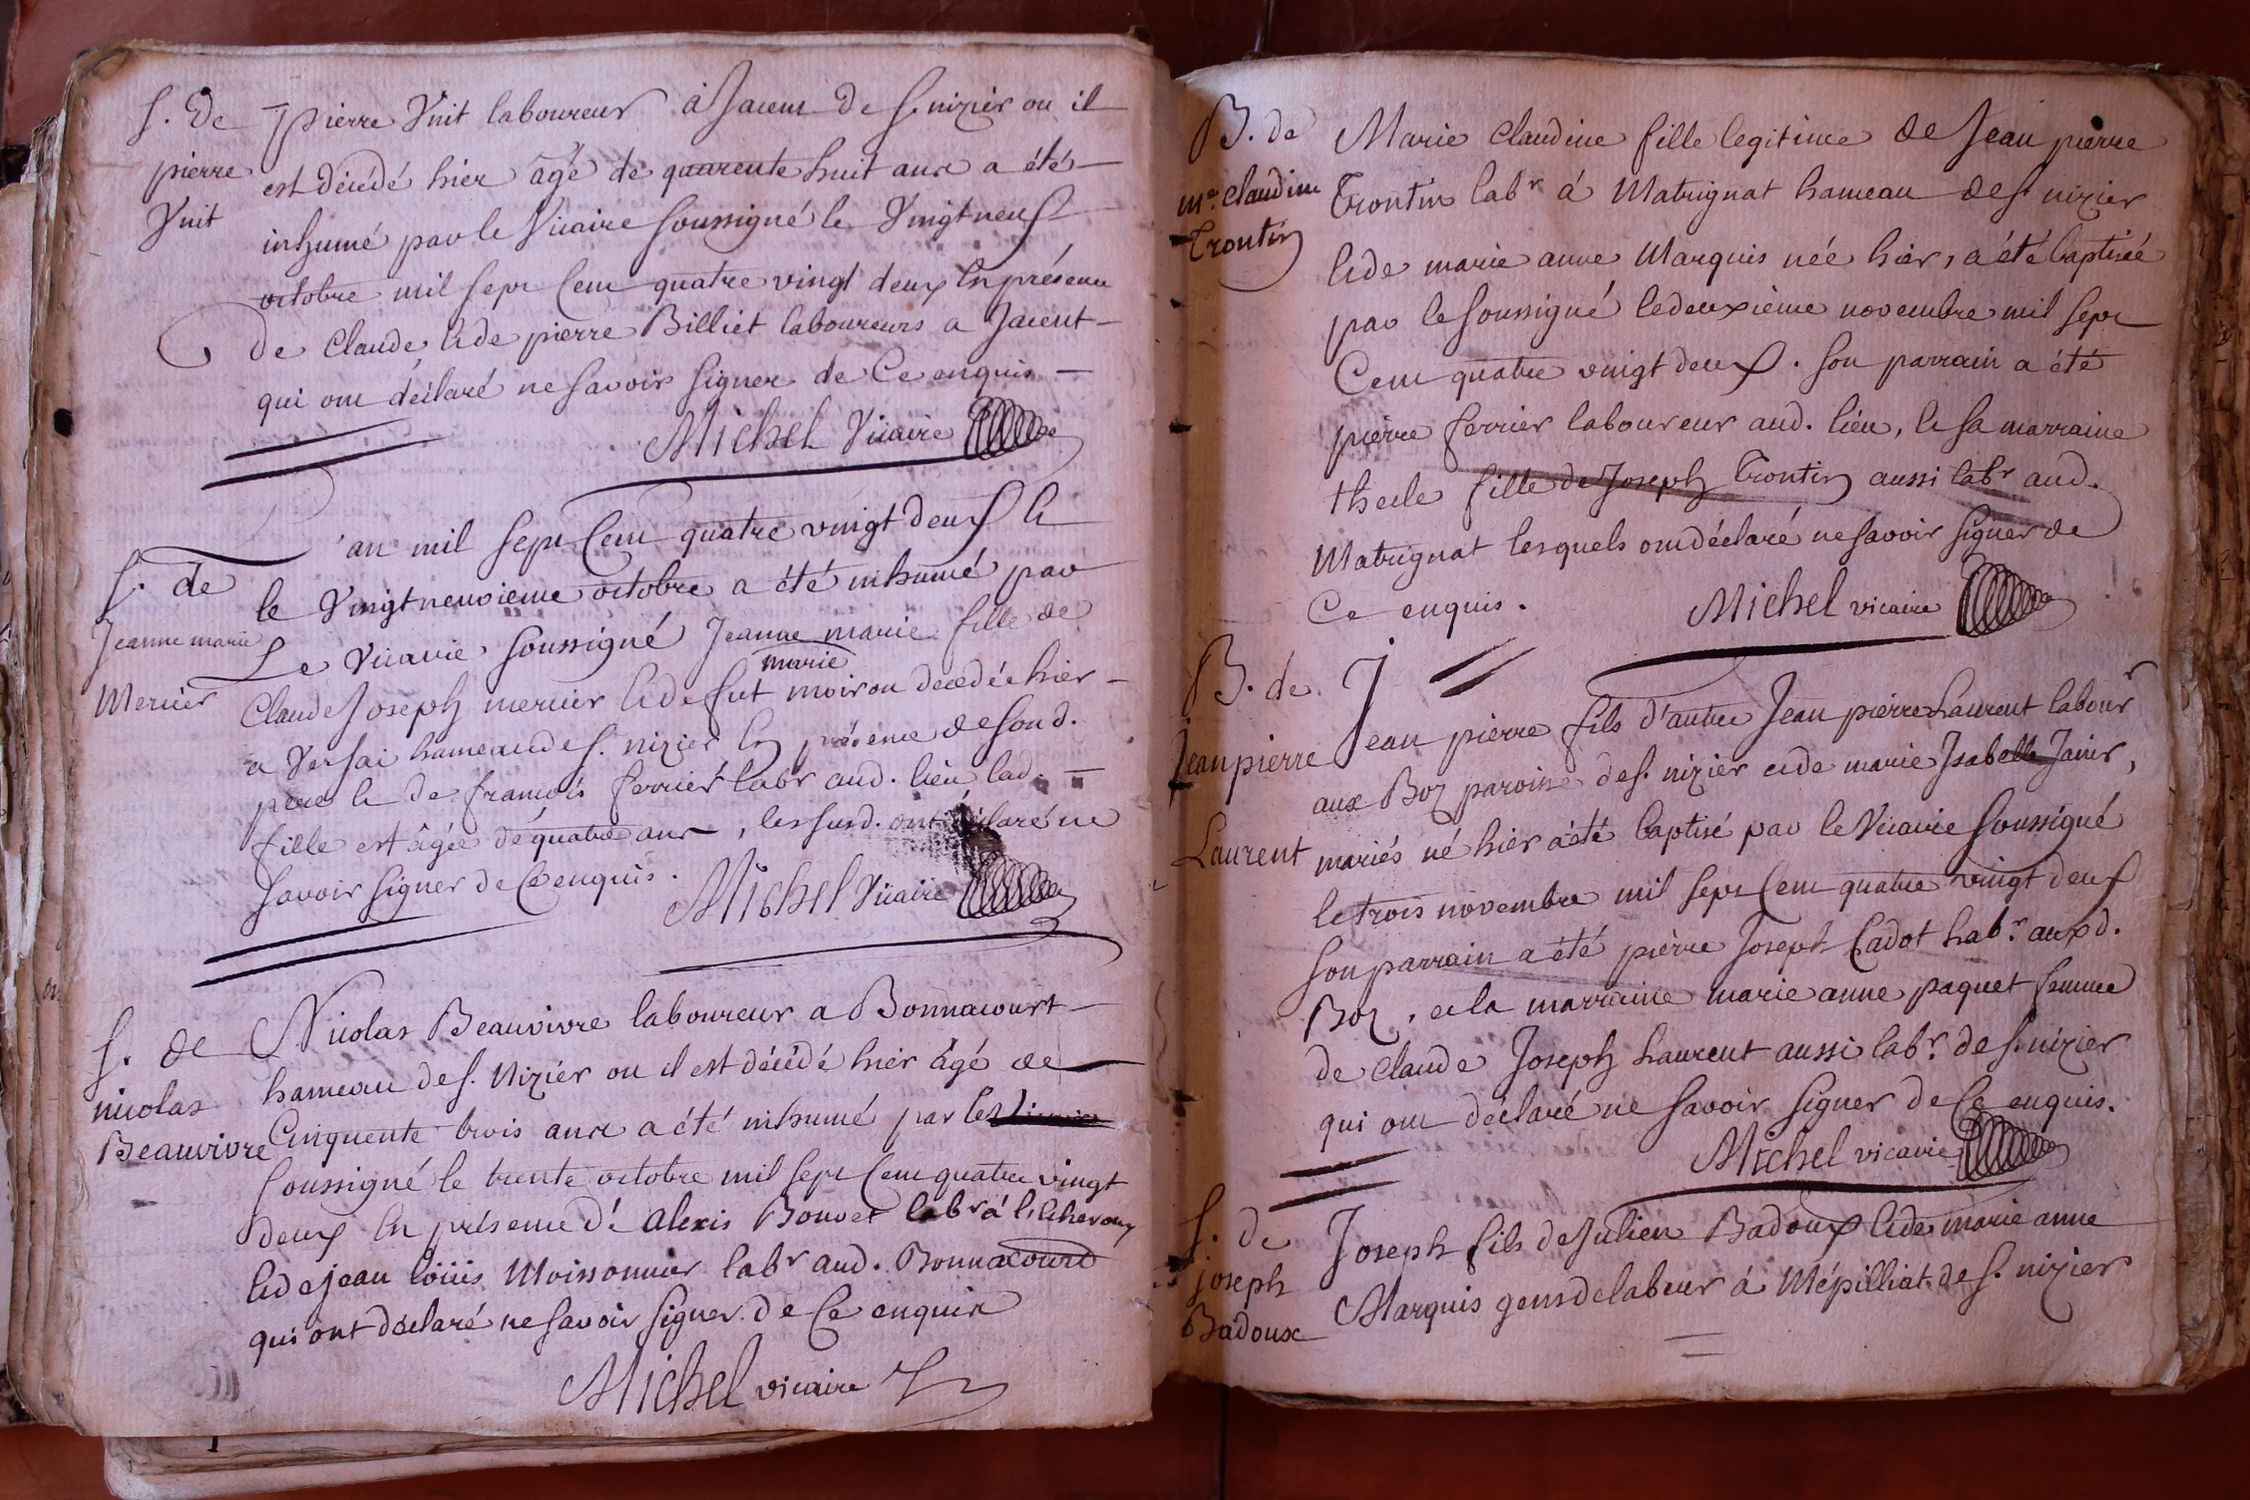 S. de
pierre
Vuit
pierre Vuit laboureur à Jacent de S. nizier ou il
est décédé hier âgé de quarente huit ans a été
inhumé par le Vicaire soussigné le Vingt neuf
octobre mil sept Cent quatre vingt deux En présence
de Claude & de pierre Billiet laboureurs a Jacent
qui ont déclaré ne savoir signer de Ce enquis
Michel Vicaire
S. de
Jeanne marie
Mercier
L'an mil sept Cent quatre vingt deux &
le Vingt neuvieme octobre a été inhumé par
Le Vicaire soussigné Jeanne marie fille de
marie
Claude Joseph mercier & de fut moiron decedée hier
a Versai hameau de S. nizier En présence de son d.
pere & de francois ferrier labr aud. lieu lad.
fille est âgée de quatre ans, les susd. ont déclaré ne
savoir signer de Ce enquis.
Michel Vicaire
S. de
nicolas
Beauvivre
Nicolas Beauvivre laboureur a Bonnacourt
hameau de S. Nizier ou il est décédé hier âgé de
Cinquente trois ans a été inhumé par le
soussigné le trente octobre mil sept Cent quatre vingt
deux En présence de alexis Bonvet labr à
& de jean loüis Moissonnier labr aud. Bonnacourt
qui ont déclaré ne savoir signer de Ce enquis
Michel vicaire
B. de
me. Claudine
Trontin
Marie Claudine fille legitime de Jean pierre
Trontin labr à Matrignat hameau de S. nizier
& de marie anne Marquis née hier, a été baptisée
par le soussigné le deuxième novembre mil sept
Cent quatre vingt deux. son parrain a été
pierre ferrier laboureur aud. lieu, & sa marraine
thecle fille de Joseph Trontin aussi labr aud.
Matrignat lesquels ont déclaré ne savoir signer de
Ce enquis.
Michel vicaire
B. de
Jean pierre
Laurent
Jean pierre fils d'autre Jean pierre Laurent labourr
aux Boz paroisse de S. nizier et de marie Isabelle Janir,
mariés né hier a été baptisé par le Vicaire soussigné
le trois novembre mil sept Cent quatre vingt deux
son parrain a été pierre Joseph Cadot habr. auxd.
Boz, et la marraine marie anne paquet femme
de Claude Joseph Laurent aussi labr. de S. nizier
qui ont déclaré ne savoir signer de Ce enquis.
Michel vicaire
S. de
joseph
Badoux
Joseph fils de Julien Badoux & de marie anne
Marquis gens de labeur à Mépilliat de S. nizier